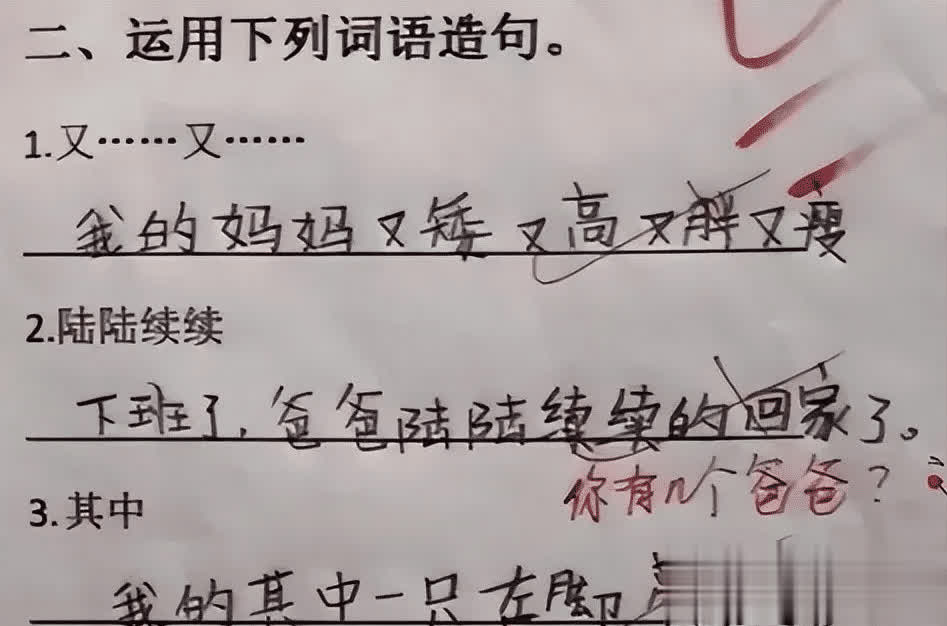 二、运用下列词语造句。
1.又……又……
我的妈妈又矮又高又胖又瘦
2.陆陆续续
下班了,爸爸陆陆续续的回家了。
你有几个爸爸?
3.其中
我的其中一只左脚